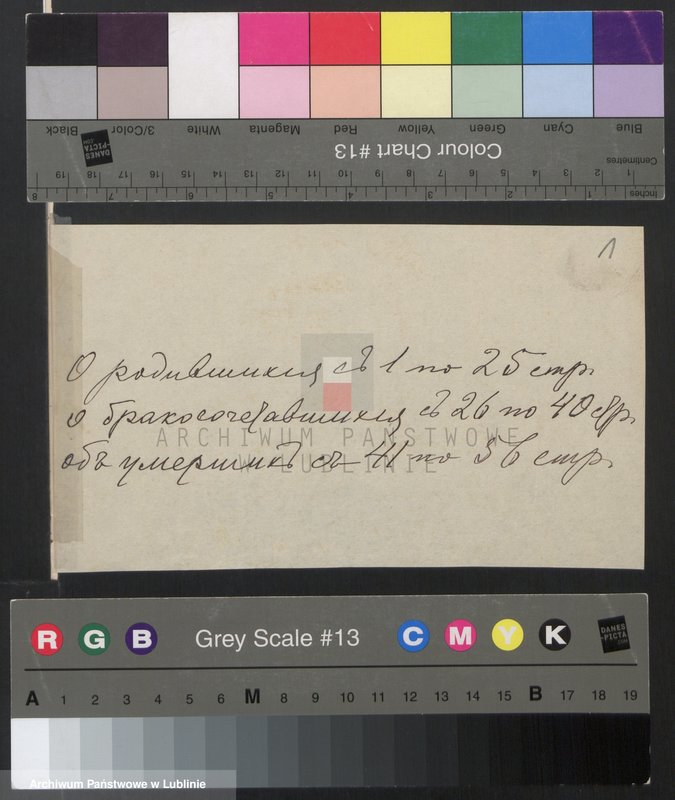 Blue Cyan Green Yellow Red Magenta White 3/Color Black
Colour Chart #13
DANES
-PICTA
.COM
Centimetres
1 2 3 4 5 6 7 8 9 10 11 12 13 14 15 16 17 18 19
Inches 1 2 3 4 5 6 7 8
1
О родившихся съ 1 по 25 стр.
о бракосочетавшихся съ 26 по 40 стр.
ARCHIWUM PAŃSTWOWE
объ умершихъ съ 41 по 56 стр.
W LUBLINIE
R G B Grey Scale #13 C M Y K
DANES
-PICTA
.COM
A 1 2 3 4 5 6 M 8 9 10 11 12 13 14 15 B 17 18 19
Archiwum Państwowe w Lublinie